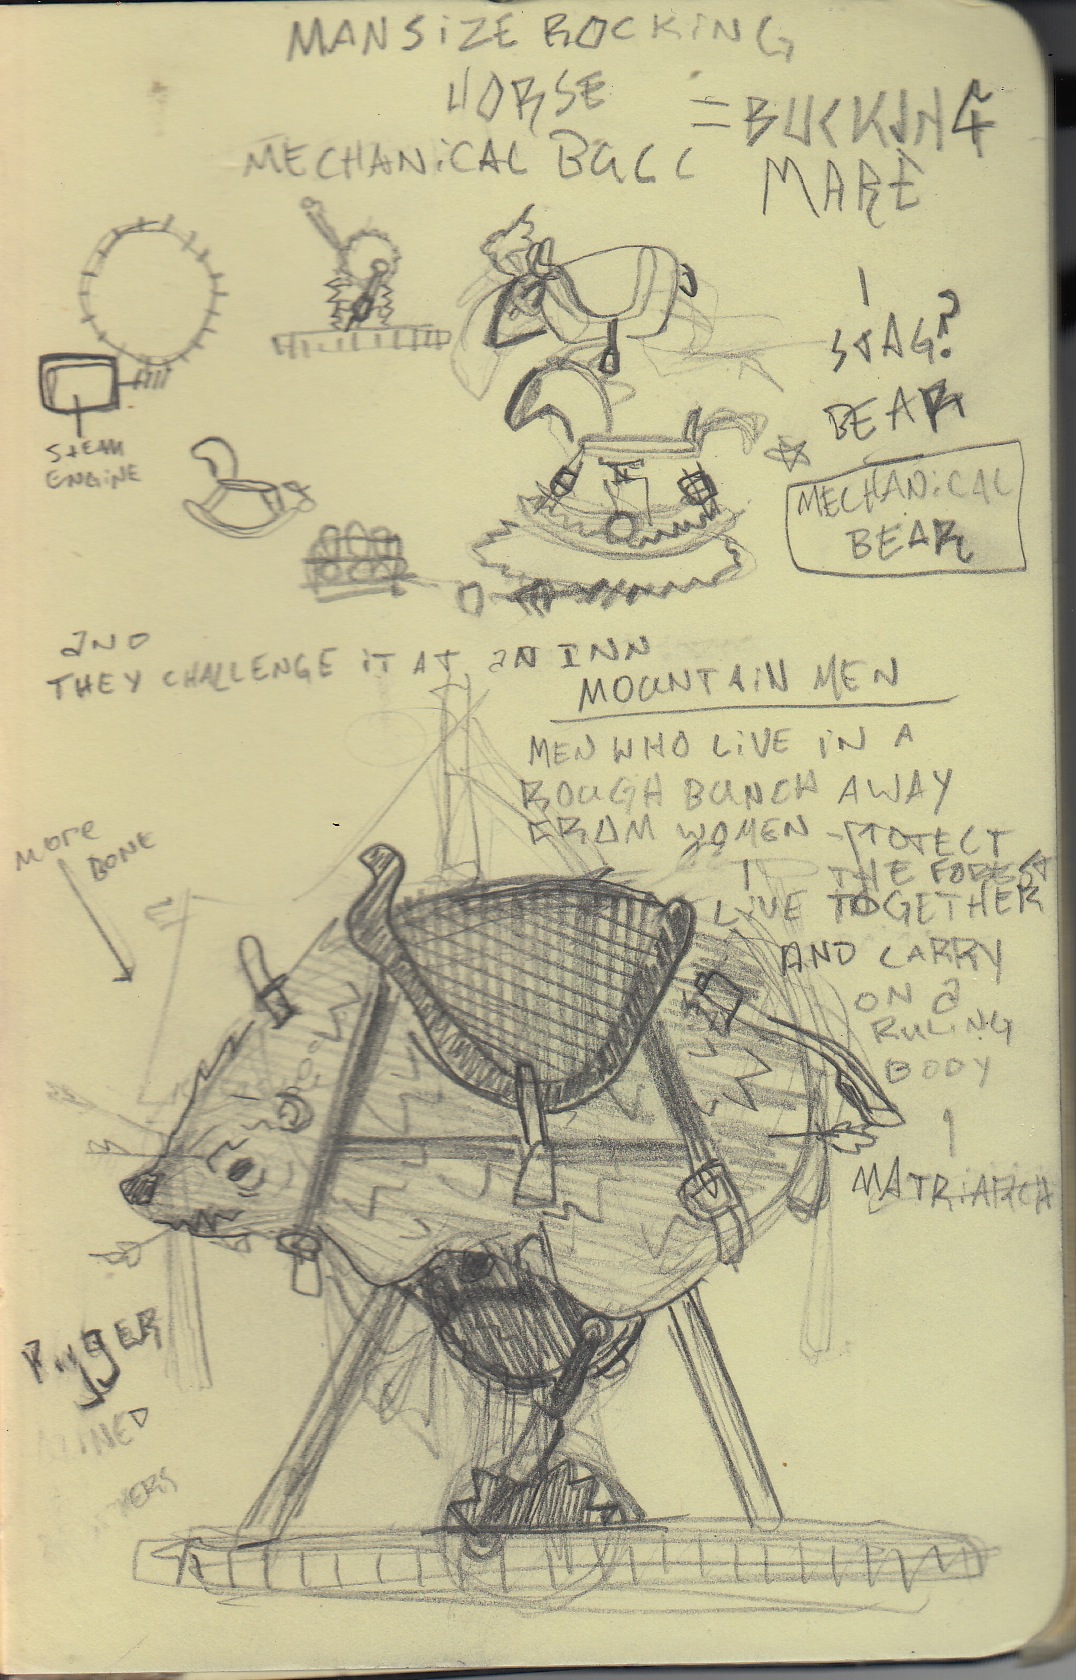 MANSiZE ROCKiNG
HORSE
MECHANiCAL BULL
= BUCKING
MARE
STAG?
BEAR
MECHANiCAL
BEAR
STEAM
ENGiNE
AND
THEY CHALLENGE iT AT AN INN
MOUNTAiN MEN
MEN WHO LiVE iN A
ROUGH BUNCH AWAY
FROM WOMEN - PROTECT
THE FOREST
LiVE TOGETHER
AND CARRY
ON A
RULiNG
BODY
MATRiARCH
more
BONE